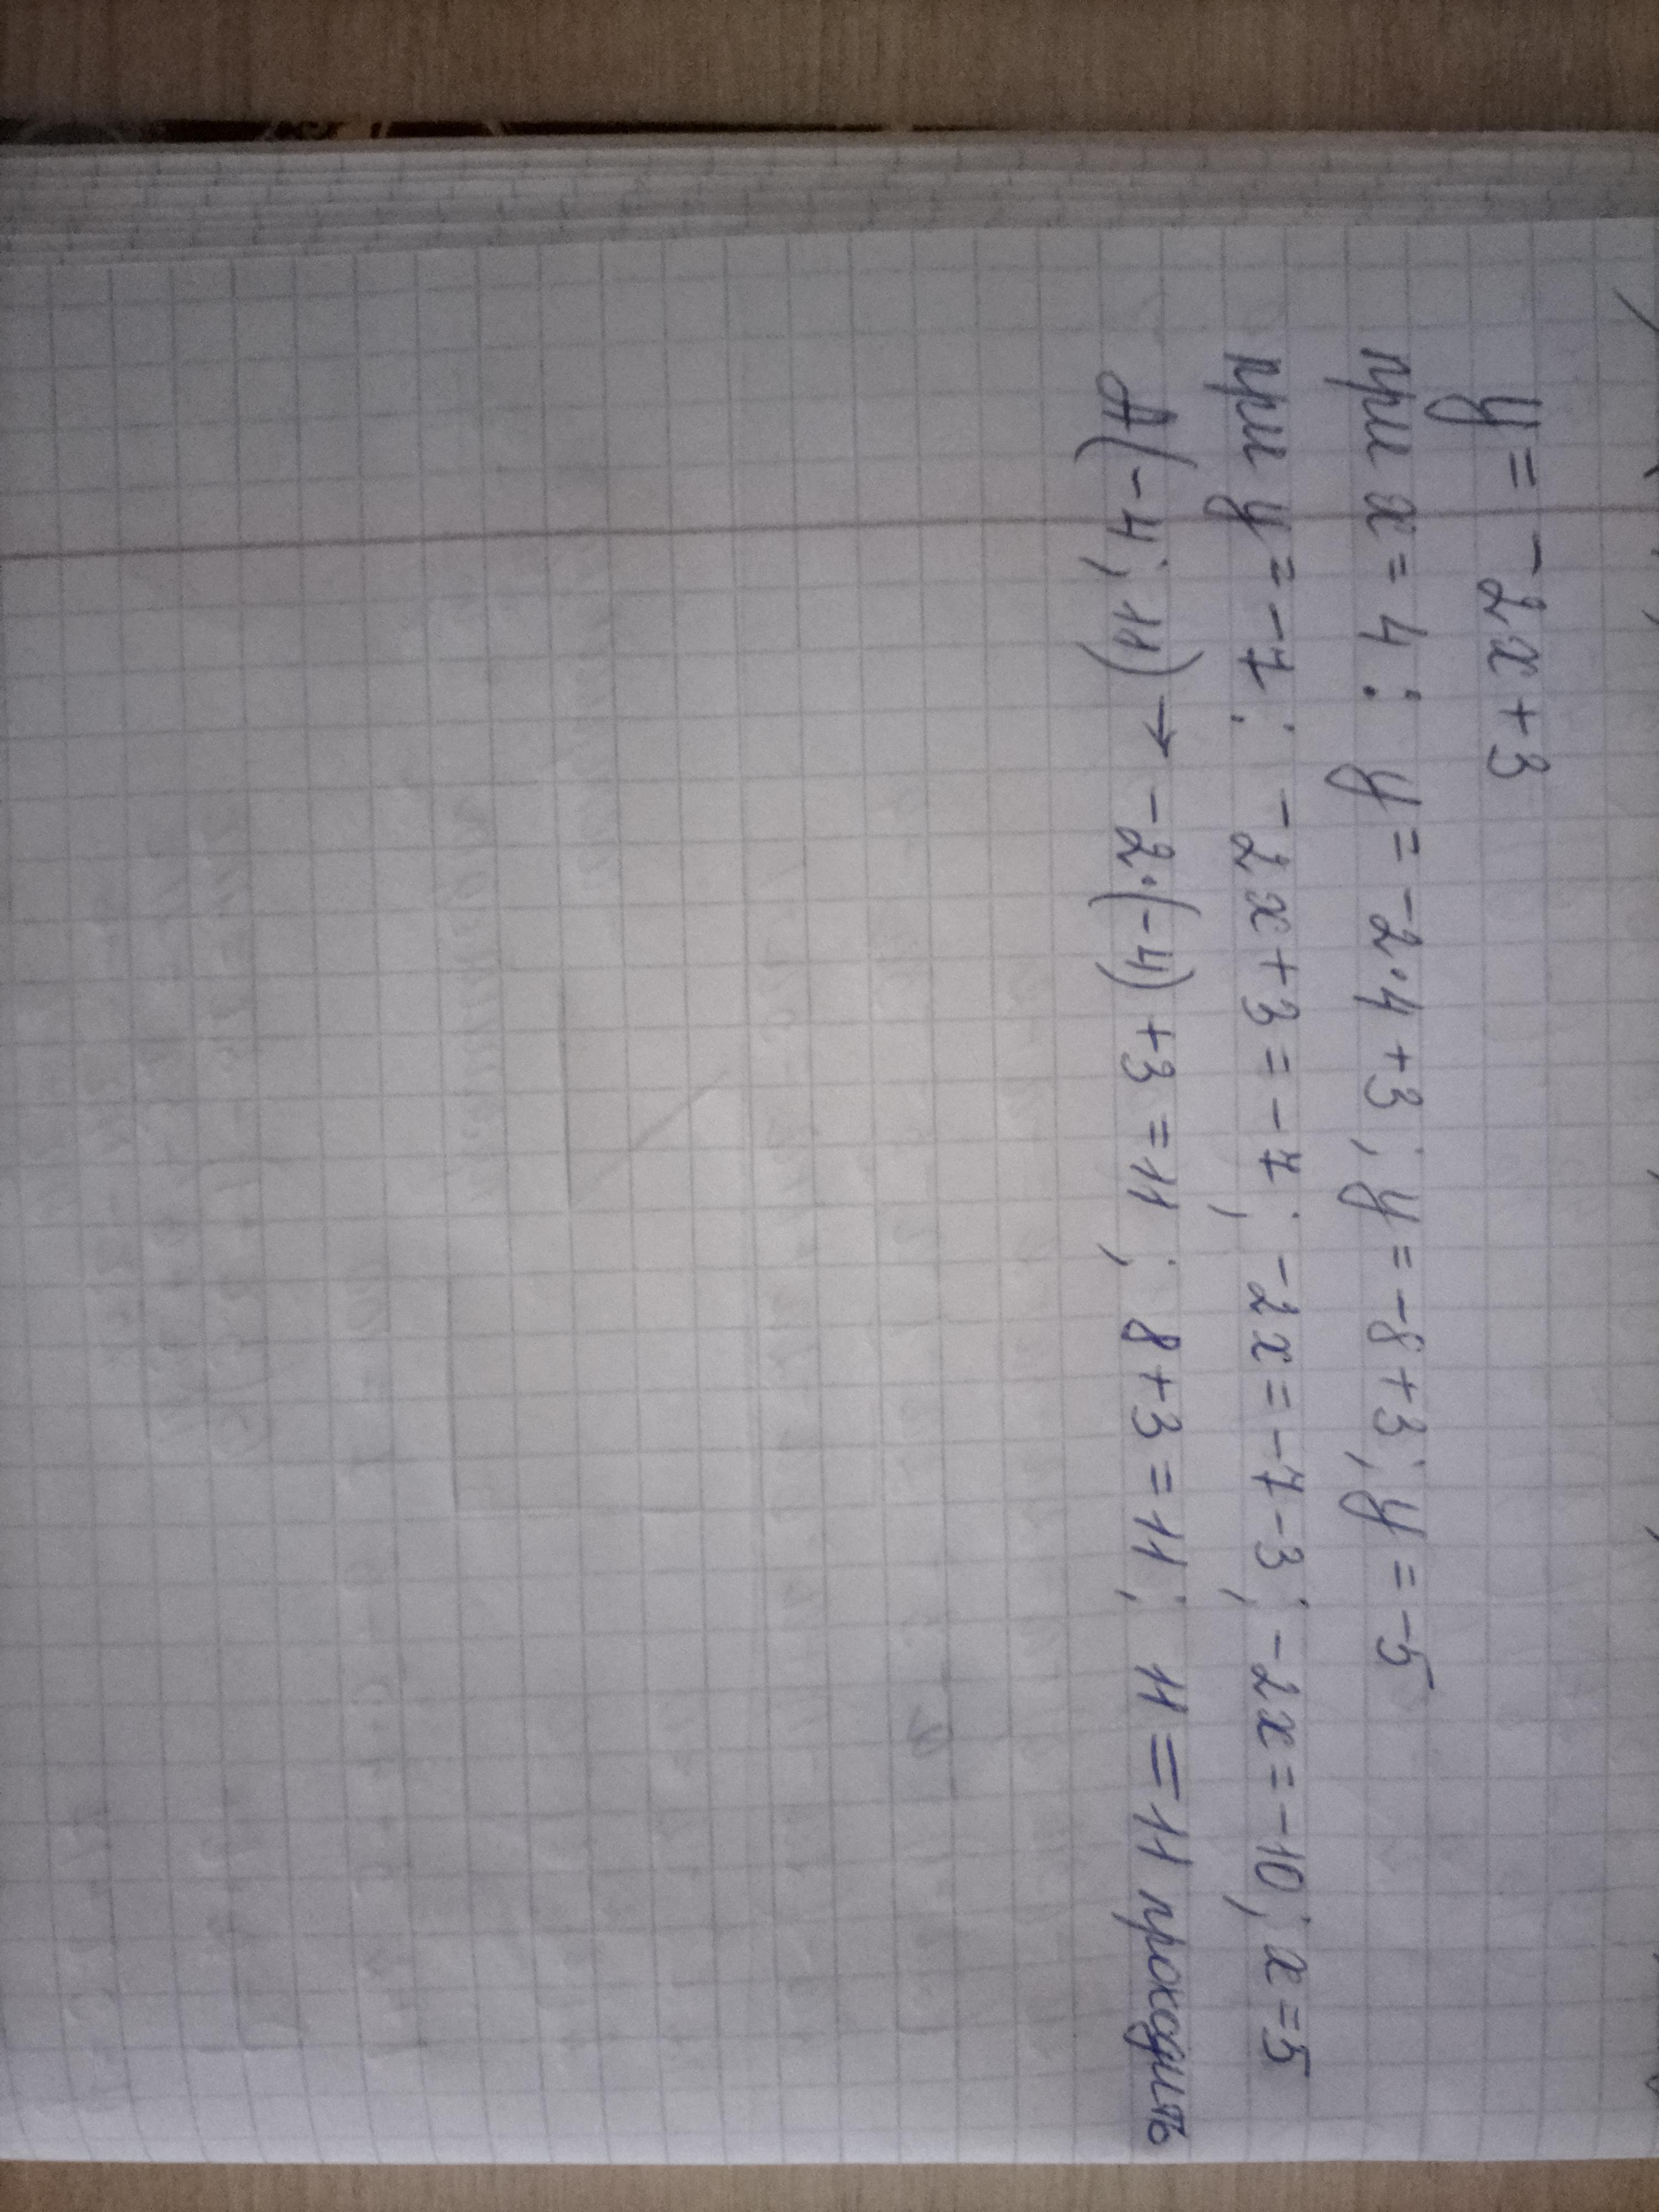 y = -2x + 3
при x = 4 : y = -2·4 + 3; y = -8 + 3; y = -5
при y = -7 : -2x + 3 = -7; -2x = -7 - 3; -2x = -10; x = 5
A(-4; 11) → -2·(-4) + 3 = 11; 8 + 3 = 11; 11 = 11 проходить